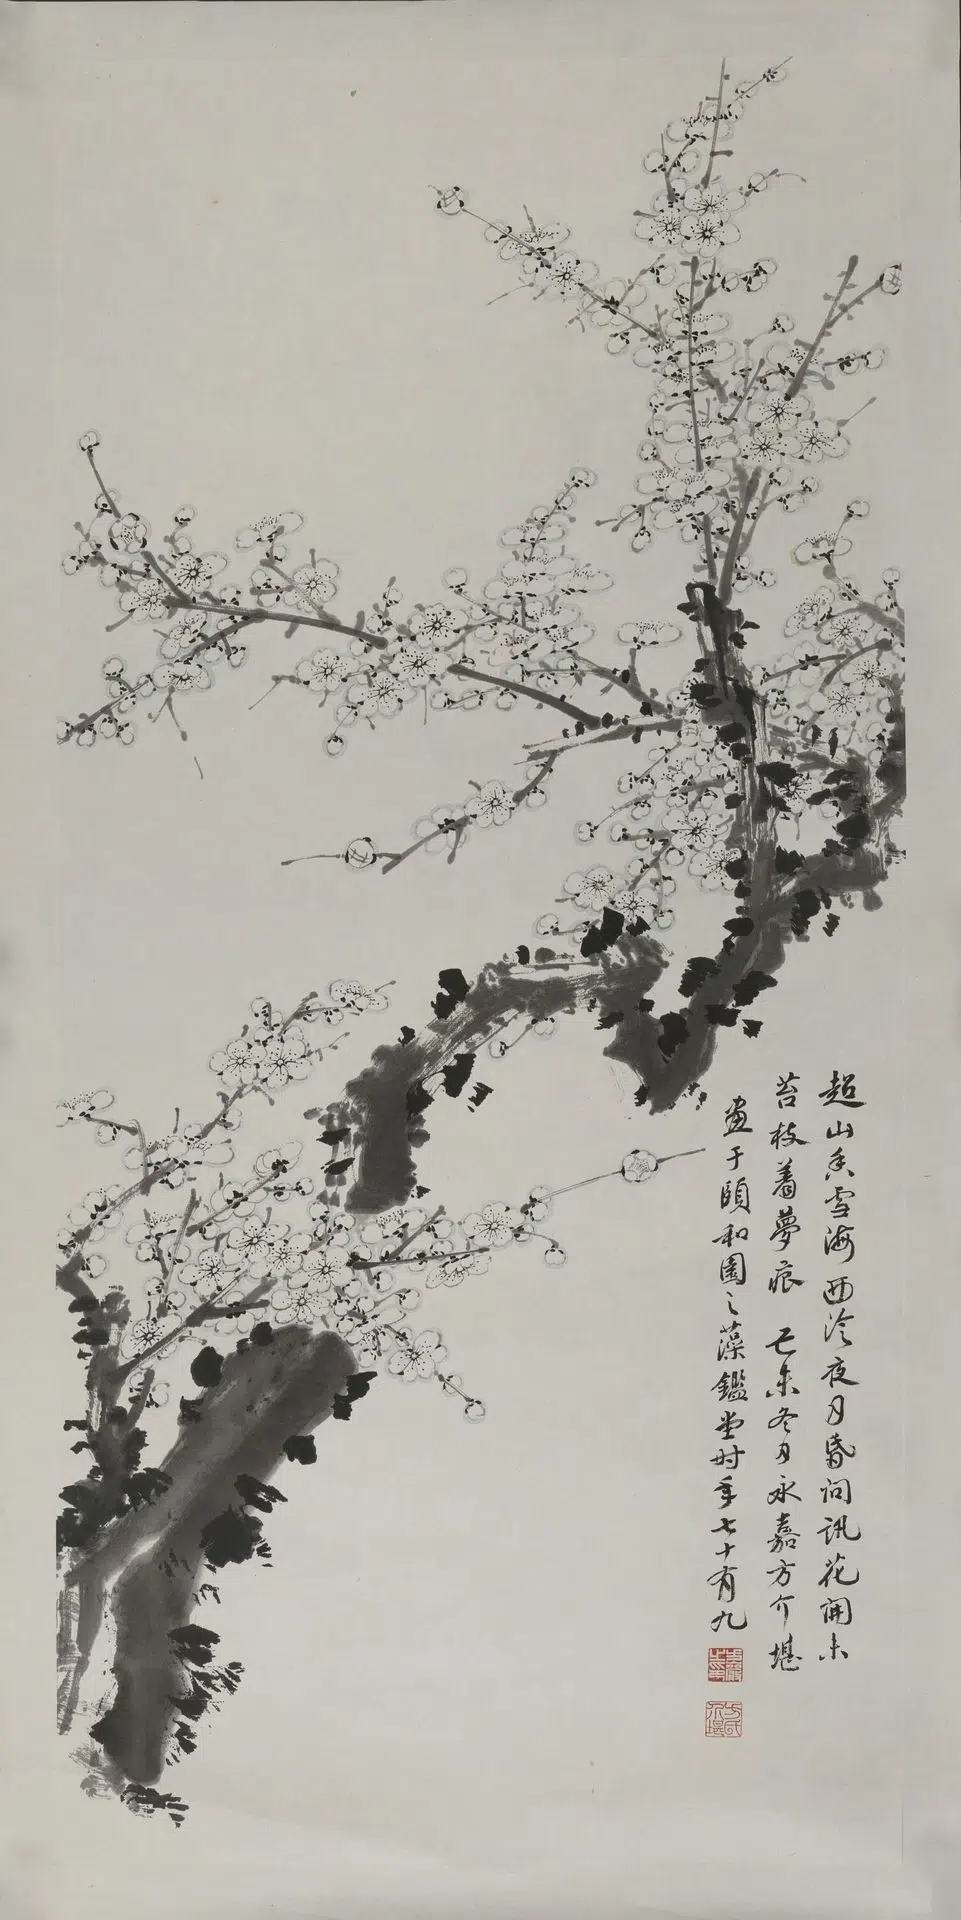 超山香雪海西泠夜月昏问讯花开未
苔枝着夢痕 己未冬月永嘉方介堪
畫于頤和園之藻鑑堂时年七十有九
方氏介堪